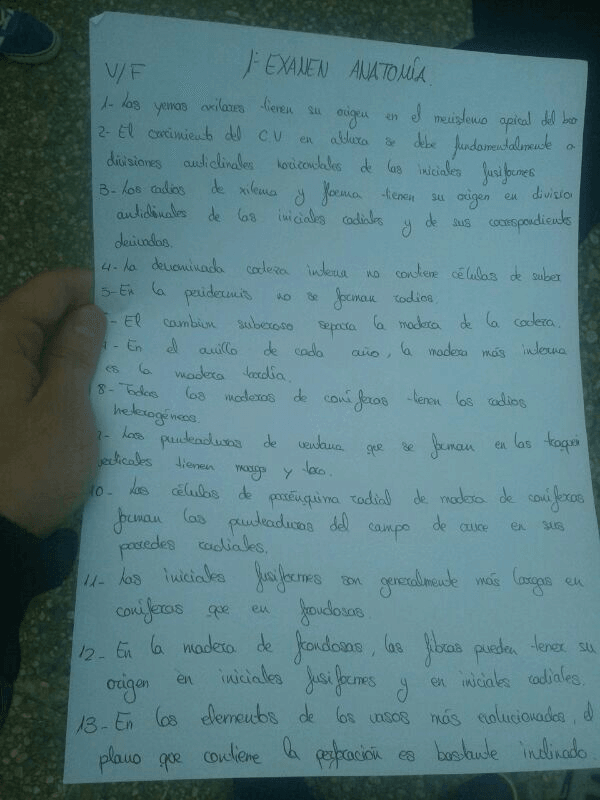 V/F 1º EXAMEN ANATOMÍA.
1- Las yemas axilares tienen su origen en el meristemo apical del
2- El crecimiento del C.V en altura se debe fundamentalmente a
divisiones anticlinales horizontales de las iniciales fusiformes
3- Los radios de xilema y floema tienen su origen en division
anticlinales de las iniciales radiales y de sus correspondientes
derivadas.
4- La denominada corteza interna no contiene células de suber
5- En la peridermis no se forman radios.
- El cambium suberoso separa la madera de la corteza.
- En el anillo de cada año, la madera más interna
es la madera tardía.
8- Todas las maderas de coníferas tienen los radios
heterogéneos.
- Las punteaduras de ventana que se forman en las traquei
verticales tienen margo y toro.
10- Las células de parénquima radial de madera de coníferas
forman las punteaduras del campo de cruce en sus
paredes radiales.
11- Las iniciales fusiformes son generalmente más largas en
coníferas que en frondosas.
12- En la madera de frondosas, las fibras pueden tener su
origen en iniciales fusiformes y en iniciales radiales.
13- En los elementos de los vasos más evolucionados, el
plano que contiene la perforación es bastante inclinado.